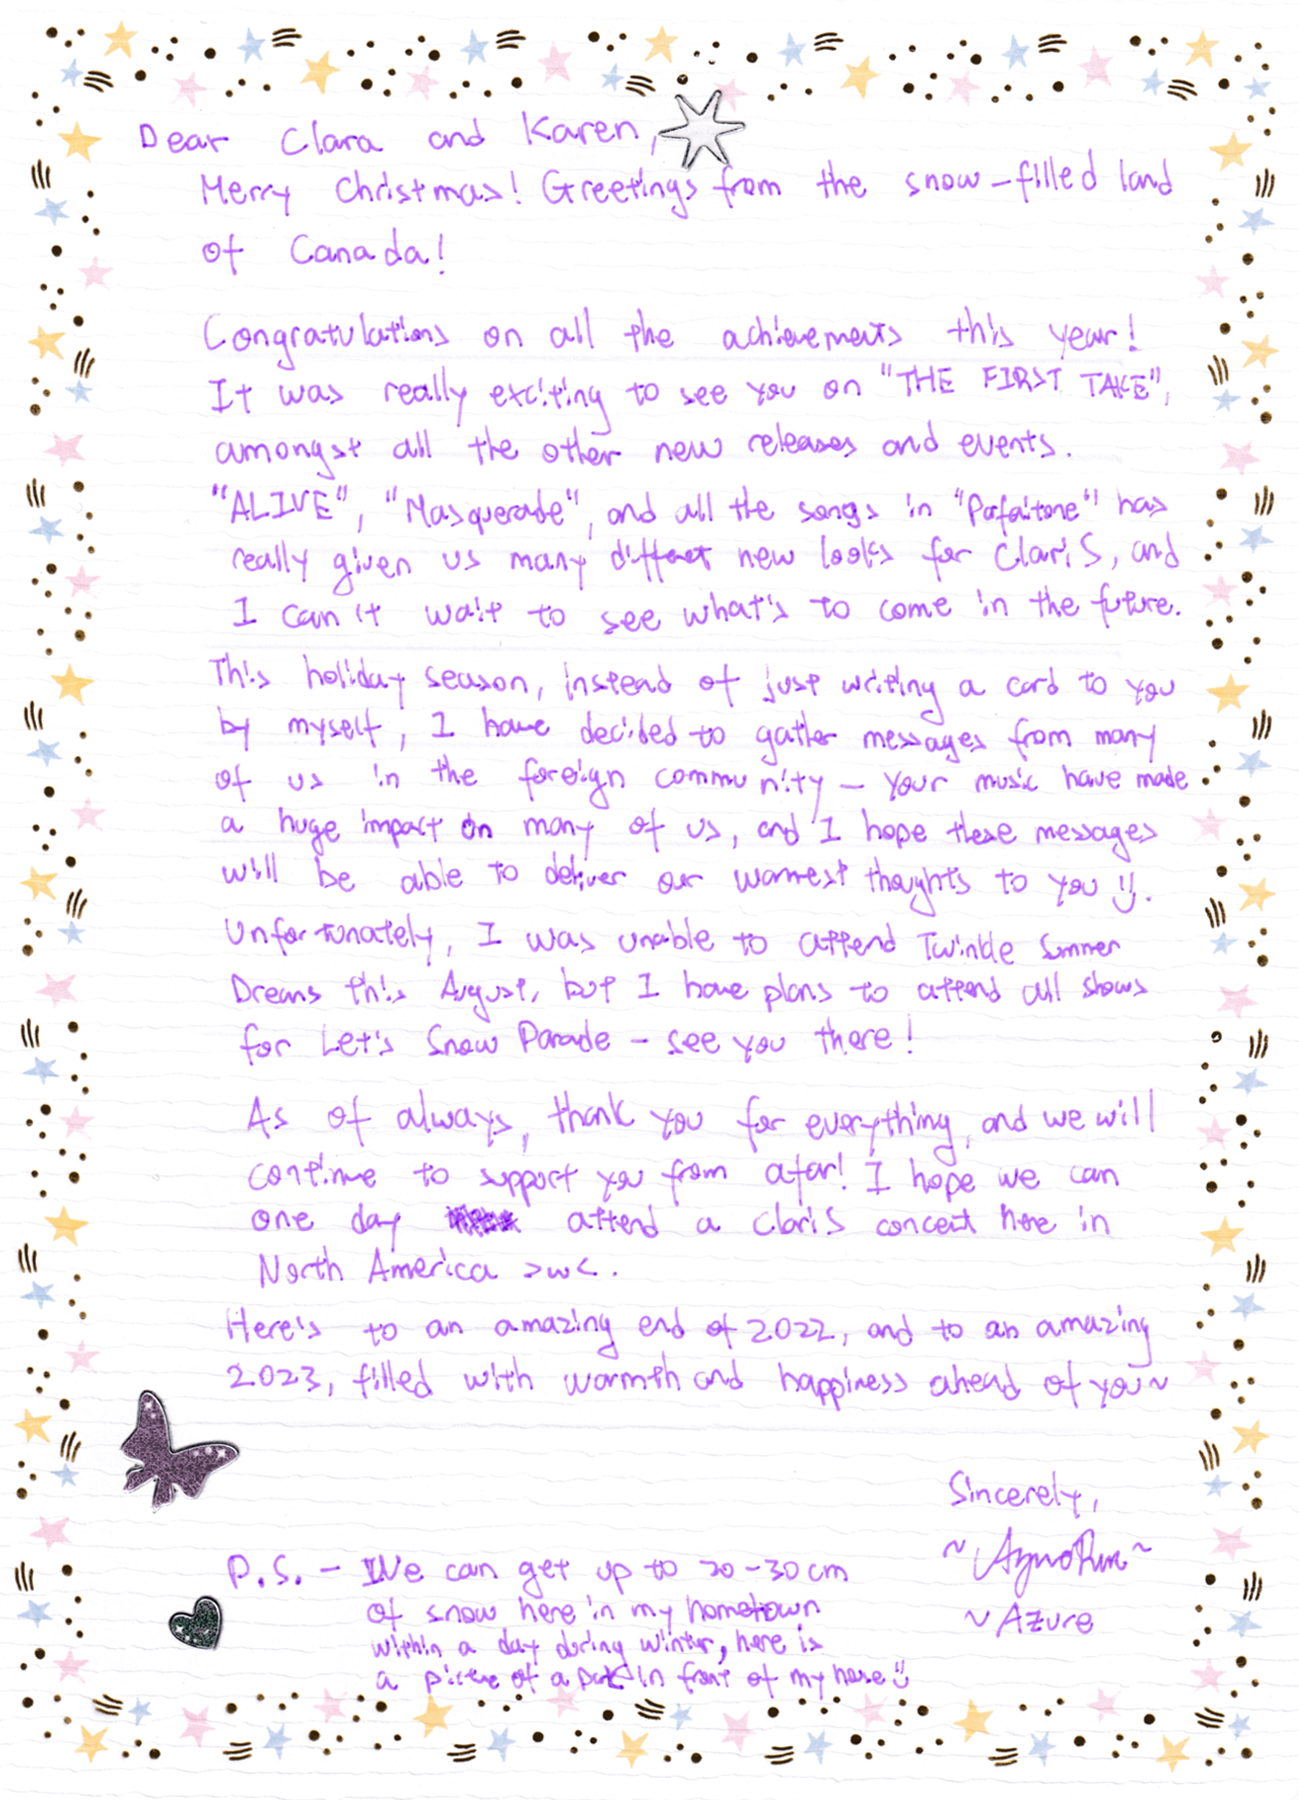 Dear Clara and Karen,
Merry Christmas! Greetings from the snow-filled land
of Canada!
Congratulations on all the achievements this year!
It was really exciting to see you on "THE FIRST TAKE",
amongst all the other new releases and events.
"ALIVE", "Masquerade", and all the songs in "Parfaitone" has
really given us many different new looks for ClariS, and
I can't wait to see what's to come in the future.
This holiday season, instead of just writing a card to you
by myself, I have decided to gather messages from many
of us in the foreign community - your music have made
a huge impact on many of us, and I hope these messages
will be able to deliver our warmest thoughts to you :).
Unfortunately, I was unable to attend Twinkle Summer
Dreams this August, but I have plans to attend all shows
for Let's Snow Parade - see you there!
As of always, thank you for everything, and we will
continue to support you from afar! I hope we can
one day attend a ClariS concert here in
North America >w<.
Here's to an amazing end of 2022, and to an amazing
2023, filled with warmth and happiness ahead of you~
Sincerely,
~Azure
P.S. - We can get up to 20-30cm
of snow here in my hometown
within a day during winter, here is
a picture of a park in front of my house :)